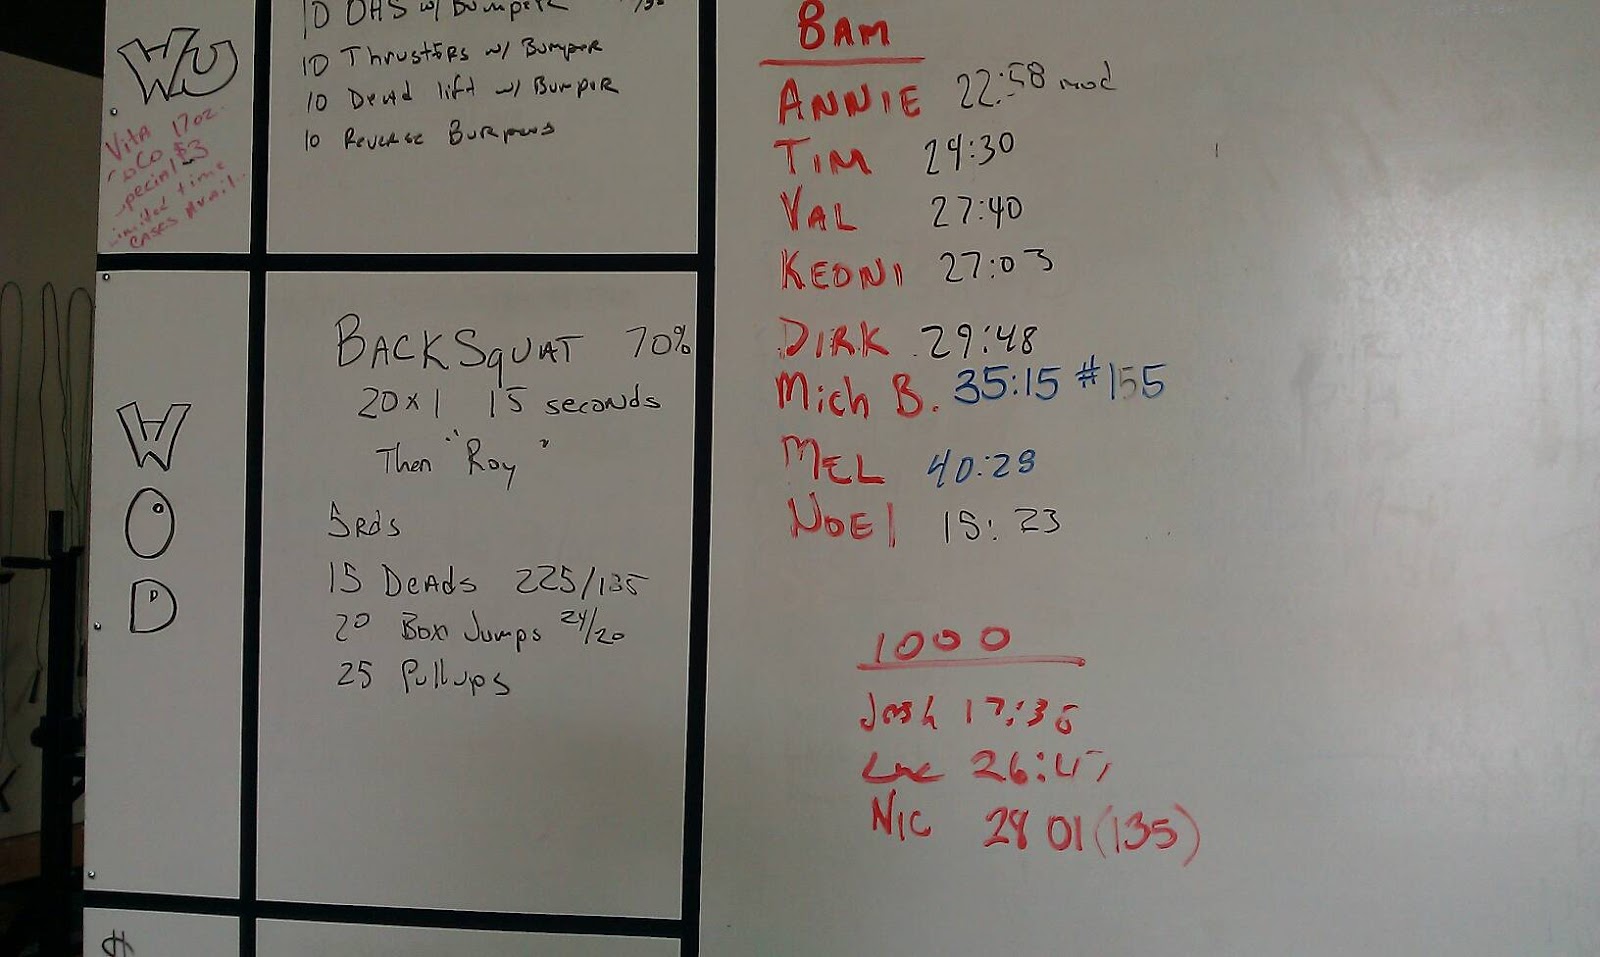 WU
Vita 17oz.
CoCo $3
special
limited time
CASES AVAIL.
10 OHS w/ Bumper
10 Thrusters w/ Bumper
10 Dead lift w/ Bumper
10 Reverse Burpees
WOD
BACK SQUAT 70%
20x1 15 seconds
Then "Roy"
5rds
15 Deads 225/135
20 Box Jumps 24/20
25 Pullups
8AM
ANNIE 22:58 mod
TIM 29:30
VAL 27:40
KEONI 27:03
DIRK 29:48
Mich B. 35:15 #155
MEL 40:28
NOEl 15:23
1000
Josh 17:36
26:47
NIC 28 01 (135)
#